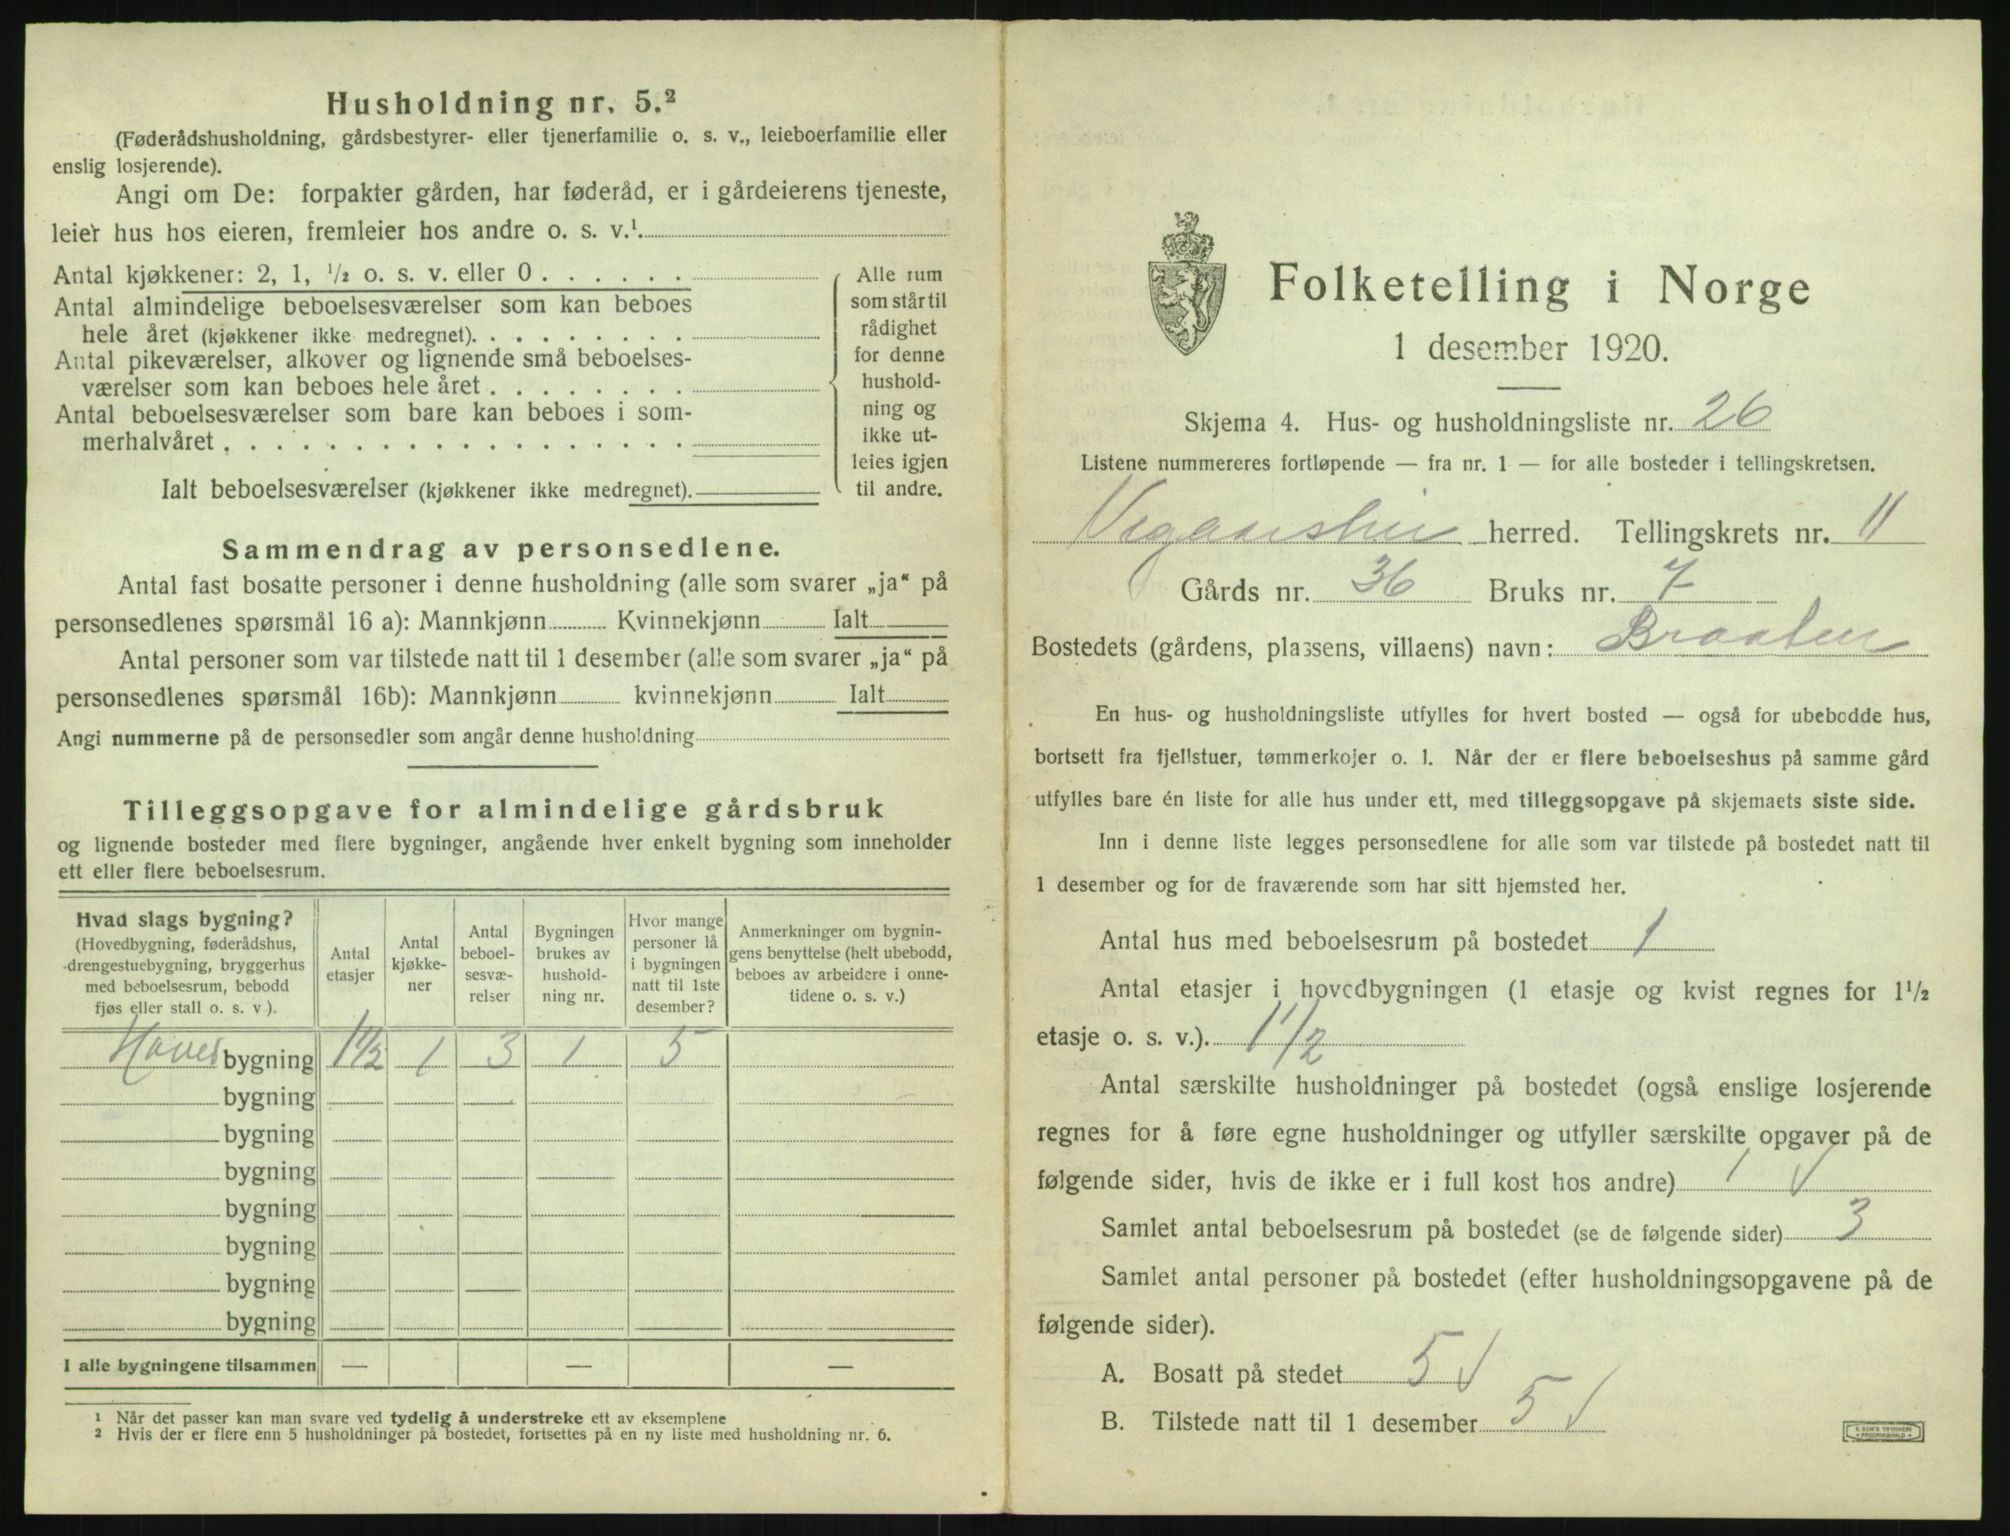 Husholdning nr. 5.²
(Føderådshusholdning, gårdsbestyrer- eller tjenerfamilie o. s. v., leieboerfamilie eller
enslig losjerende).
Angi om De: forpakter gården, har føderåd, er i gårdeierens tjeneste,
leier hus hos eieren, fremleier hos andre o. s. v.¹
Antal kjøkkener: 2, 1, ½ o. s. v. eller 0
Antal almindelige beboelsesværelser som kan beboes
hele året (kjøkkener ikke medregnet).
Antal pikeværelser, alkover og lignende små beboelses-
værelser som kan beboes hele året
Antal beboelsesværelser som bare kan beboes i som-
merhalvåret
Ialt beboelsesværelser (kjøkkener ikke medregnet).
Alle rum
som står til
rådighet
for denne
hushold-
ning og
ikke ut-
leies igjen
til andre.
Sammendrag av personsedlene.
Antal fast bosatte personer i denne husholdning (alle som svarer „ja“ på
personsedlenes spørsmål 16 a): Mannkjønn Kvinnekjønn Ialt
Antal personer som var tilstede natt til 1 desember (alle som svarer „ja“ på
personsedlenes spørsmål 16b): Mannkjønn kvinnekjønn Ialt
Angi nummerne på de personsedler som angår denne husholdning
Tilleggsopgave for almindelige gårdsbruk
og lignende bosteder med flere bygninger, angående hver enkelt bygning som inneholder
ett eller flere beboelsesrum.
Hvad slags bygning?
(Hovedbygning, føderådshus,
drengestuebygning, bryggerhus
med beboelsesrum, bebodd
fjøs eller stall o. s. v.).
Antal
etasjer
Antal
kjøkke-
ner
Antal
beboel-
sesvæ-
relser
Bygningen
brukes av
hushold-
ning nr.
Hvor mange
personer lå
i bygningen
natt til 1ste
desember?
Anmerkninger om bygnin-
gens benyttelse (helt ubebodd,
beboes av arbeidere i onne-
tidene o. s. v.)
Hoved bygning 1½ 1 3 1 5
bygning
bygning
bygning
bygning
bygning
bygning
bygning
I alle bygningene tilsammen — — —
1 Når det passer kan man svare ved tydelig å understreke ett av eksemplene
2 Hvis der er flere enn 5 husholdninger på bostedet, fortsettes på en ny liste med husholdning nr. 6.
Folketelling i Norge
1 desember 1920.
Skjema 4. Hus- og husholdningsliste nr. 26
Listene nummereres fortløpende — fra nr. 1 — for alle bosteder i tellingskretsen.
Vegaarshei herred. Tellingskrets nr. 11
Gårds nr. 36 Bruks nr. 7
Bostedets (gårdens, plassens, villaens) navn: Braaten
En hus- og husholdningsliste utfylles for hvert bosted — også for ubebodde hus,
bortsett fra fjellstuer, tømmerkojer o. l. Når der er flere beboelseshus på samme gård
utfylles bare én liste for alle hus under ett, med tilleggsopgave på skjemaets siste side.
Inn i denne liste legges personsedlene for alle som var tilstede på bostedet natt til
1 desember og for de fraværende som har sitt hjemsted her.
Antal hus med beboelsesrum på bostedet 1
Antal etasjer i hovedbygningen (1 etasje og kvist regnes for 1½
etasje o. s. v.). 1 1/2
Antal særskilte husholdninger på bostedet (også enslige losjerende
regnes for å føre egne husholdninger og utfyller særskilte opgaver på de
følgende sider, hvis de ikke er i full kost hos andre) 1 √
Samlet antal beboelsesrum på bostedet (se de følgende sider) 3
Samlet antal personer på bostedet (efter husholdningsopgavene på de
følgende sider).
A. Bosatt på stedet 5 √
B. Tilstede natt til 1 desember 5 √